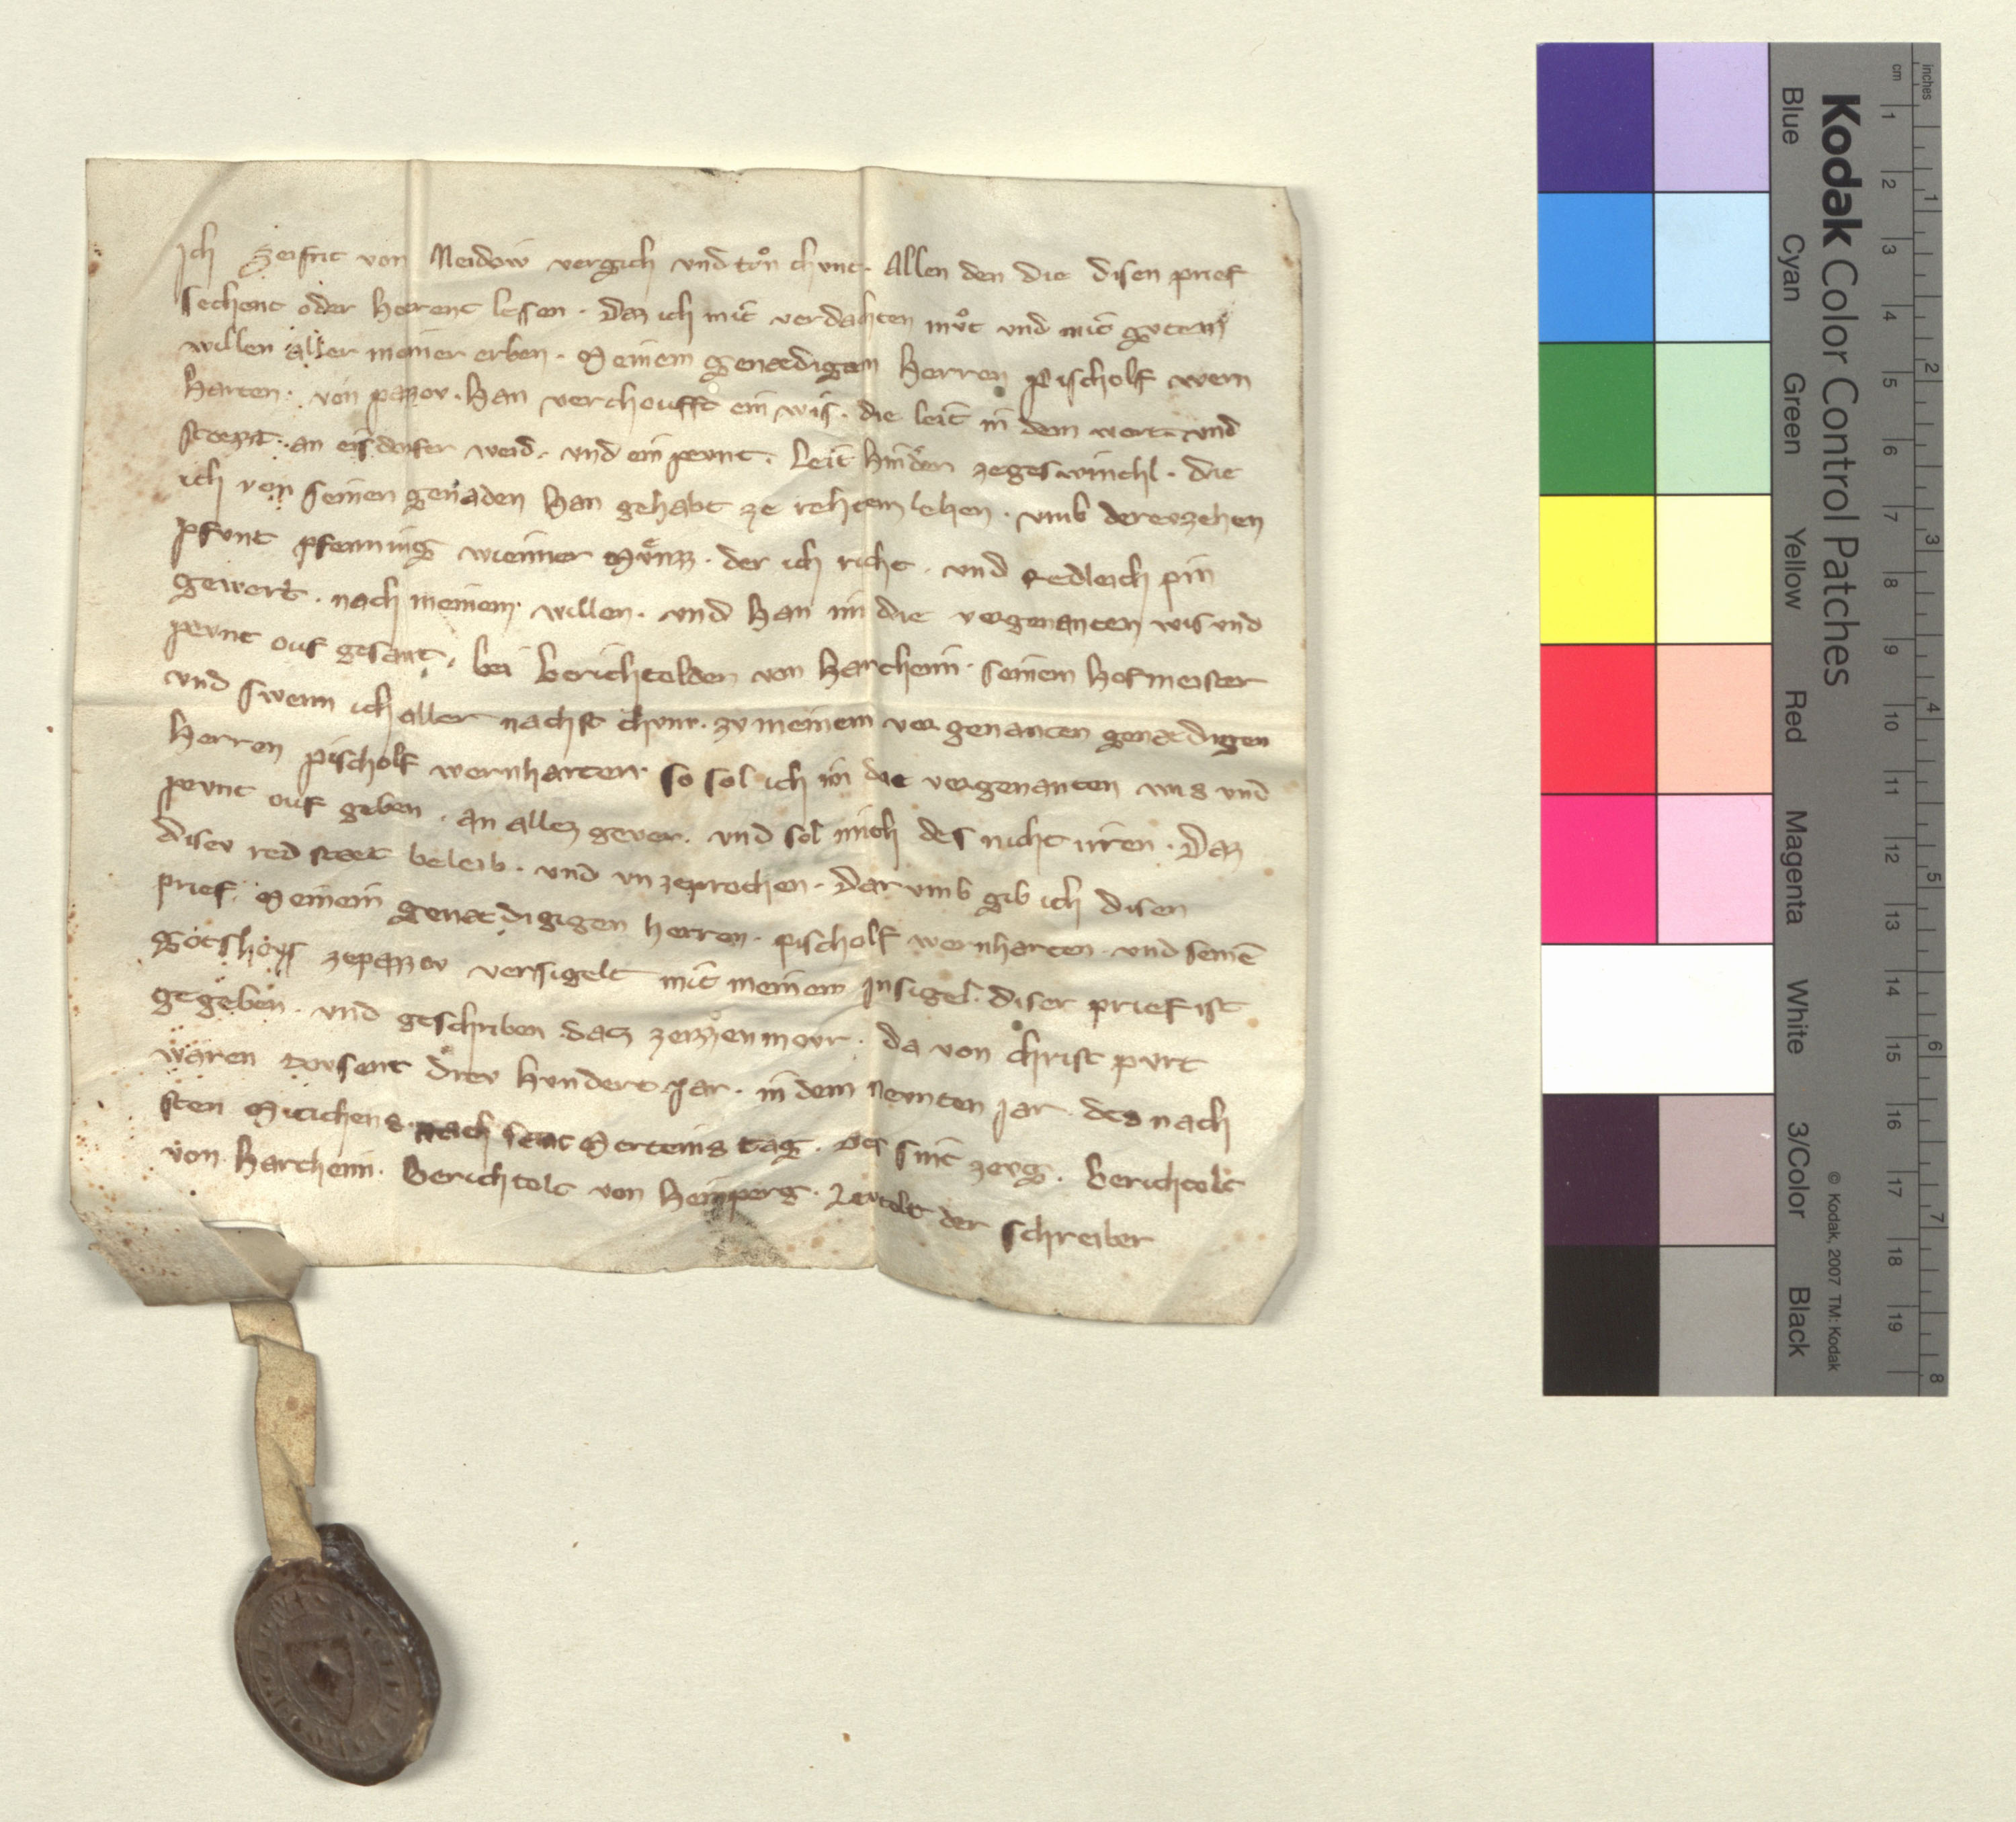 Ich Seifrit von Neidow vergich vnd tvͦn chvnt. Allen den die disen prief
sechent oder hoerent lesen. Daz ich mit verdahten mvͦt vnd mit gvtem
willen aller meiner erben. Meinem genaedigem herren Pischolf wern
harten. von pazzov. han verchoufft ein wis. die leit in dem wert vnd
stoezzt. an eisdorfer weid. vnd ein pevnt. Leit hinden zegeswinchl. die
ich von seinen genaden han gehabt ze rehtem lehen. vmb drevzehen
pfvnt pfenning wienner Mvͤnzz. der ich richt. vnd redleich pin
gewert. nach meinem willen. vnd han im die vorgenanten wis vnd
pevnt ouf gesant. bei berichtolden von harcheim. seinem hofmeister
vnd swenn ich aller nachst chvm. zv meinem vorgenanten genaedigen
herren pischolf wernharten. so sol ich im die vorgenanten wis vnd
pevnt ouf geben. an allez gever. vnd sol mich des nicht irren. Daz
disev red staet beleib. vnd vnzeprochen. Dar vmb gib ich disen
prief. Meinem genaedigigen herren. pischolf wernharten. vnd seinē
Gotshovs zepazzov versigelt mit meinem Insigel. diser prief ist
gegeben. vnd geschriben datz zeizzenmovr. da von christ pvrt
waren tovsent drev hvndert Jar. in dem Nevnten Jar. des nach
sten Mitichens nach sent Merteins tag. des sint zevg. berichtolt
von harcheim. Berichtolt von hemperg. Levtolt der schreiber
Kodak Color Control Patches
Blue Cyan Green Yellow Red Magenta White 3/Color Black
© Kodak, 2007 TM: Kodak
inches 1 2 3 4 5 6 7 8
cm 1 2 3 4 5 6 7 8 9 10 11 12 13 14 15 16 17 18 19